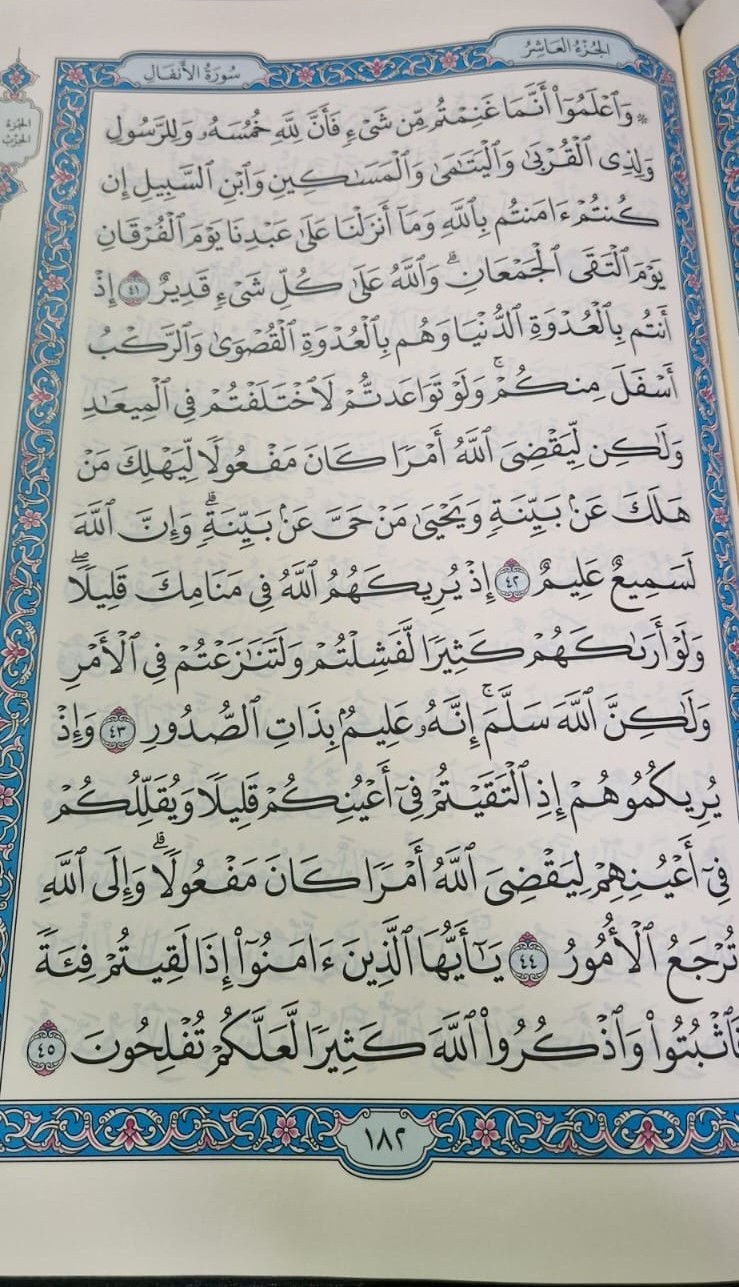 الجزء العاشر
سورة الأنفال
۞ وَٱعْلَمُوٓا۟ أَنَّمَا غَنِمْتُم مِّن شَىْءٍ فَأَنَّ لِلَّهِ خُمُسَهُۥ وَلِلرَّسُولِ
وَلِذِى ٱلْقُرْبَىٰ وَٱلْيَتَـٰمَىٰ وَٱلْمَسَـٰكِينِ وَٱبْنِ ٱلسَّبِيلِ إِن
كُنتُمْ ءَامَنتُم بِٱللَّهِ وَمَآ أَنزَلْنَا عَلَىٰ عَبْدِنَا يَوْمَ ٱلْفُرْقَانِ
يَوْمَ ٱلْتَقَى ٱلْجَمْعَانِ ۗ وَٱللَّهُ عَلَىٰ كُلِّ شَىْءٍ قَدِيرٌ ٤١ إِذْ
أَنتُم بِٱلْعُدْوَةِ ٱلدُّنْيَا وَهُم بِٱلْعُدْوَةِ ٱلْقُصْوَىٰ وَٱلرَّكْبُ
أَسْفَلَ مِنكُمْ ۚ وَلَوْ تَوَاعَدتُّمْ لَٱخْتَلَفْتُمْ فِى ٱلْمِيعَـٰدِ
وَلَـٰكِن لِّيَقْضِىَ ٱللَّهُ أَمْرًا كَانَ مَفْعُولًا لِّيَهْلِكَ مَنْ
هَلَكَ عَنۢ بَيِّنَةٍ وَيَحْيَىٰ مَنْ حَىَّ عَنۢ بَيِّنَةٍ ۗ وَإِنَّ ٱللَّهَ
لَسَمِيعٌ عَلِيمٌ ٤٢ إِذْ يُرِيكَهُمُ ٱللَّهُ فِى مَنَامِكَ قَلِيلًا ۖ
وَلَوْ أَرَىٰكَهُمْ كَثِيرًا لَّفَشِلْتُمْ وَلَتَنَـٰزَعْتُمْ فِى ٱلْأَمْرِ
وَلَـٰكِنَّ ٱللَّهَ سَلَّمَ ۚ إِنَّهُۥ عَلِيمٌۢ بِذَاتِ ٱلصُّدُورِ ٤٣ وَإِذْ
يُرِيكُمُوهُمْ إِذِ ٱلْتَقَيْتُمْ فِىٓ أَعْيُنِكُمْ قَلِيلًا وَيُقَلِّلُكُمْ
فِىٓ أَعْيُنِهِمْ لِيَقْضِىَ ٱللَّهُ أَمْرًا كَانَ مَفْعُولًا ۗ وَإِلَى ٱللَّهِ
تُرْجَعُ ٱلْأُمُورُ ٤٤ يَـٰٓأَيُّهَا ٱلَّذِينَ ءَامَنُوٓا۟ إِذَا لَقِيتُمْ فِئَةً
فَٱثْبُتُوا۟ وَٱذْكُرُوا۟ ٱللَّهَ كَثِيرًا لَّعَلَّكُمْ تُفْلِحُونَ ٤٥
١٨٢